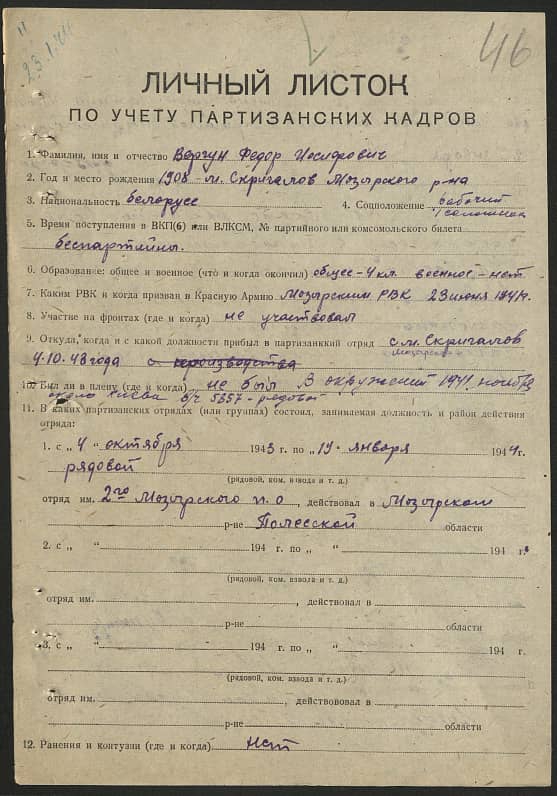 23.1.44
46
ЛИЧНЫЙ ЛИСТОК
ПО УЧЕТУ ПАРТИЗАНСКИХ КАДРОВ
1. Фамилия, имя и отчество Вергун Федор Иосифович
2. Год и место рождения 1908 - м. Скригалов Мозырского р-на
3. Национальность белорусс 4. Соцположение рабочий
5. Время поступления в ВКП(б) или ВЛКСМ, № партийного или комсомольского билета
беспартийный.
6. Образование: общее и военное (что и когда окончил) общее-4кл. военное-нет
7. Каким РВК и когда призван в Красную Армию Мозырским РВК 23 июня 1941г.
8. Участие на фронтах (где и когда) не участвовал
9. Откуда, когда и с какой должности прибыл в партизанкий отряд с м. Скригалов
Мозырского
4.10.43 года с производства
10. Был ли в плену (где и когда) не был В окружений 1941 ноября
около Киева в/ч 5357 - рядовой
11. В каких партизанских отрядах (или группах) состоял, занимаемая должность и район действия
отряда:
1. с „ 4 “ октября 1943 г. по „ 19 “ января 1944 г.
рядовой
(рядовой, ком. взвода и т. д.)
отряд им. 2го Мозырского п.о , действовал в Мозырском
р-не Полесской области
2. с „ “ 194 г. по „ “ 194 г.
(рядовой, ком. взвода и т. д.)
отряд им. , действовал в
р-не области
3. с „ “ 194 г. по „ “ 194 г.
(рядовой, ком. взвода и т. д.)
отряд им. , действововал в
р-не области
12. Ранения и контузии (где и когда) Нет